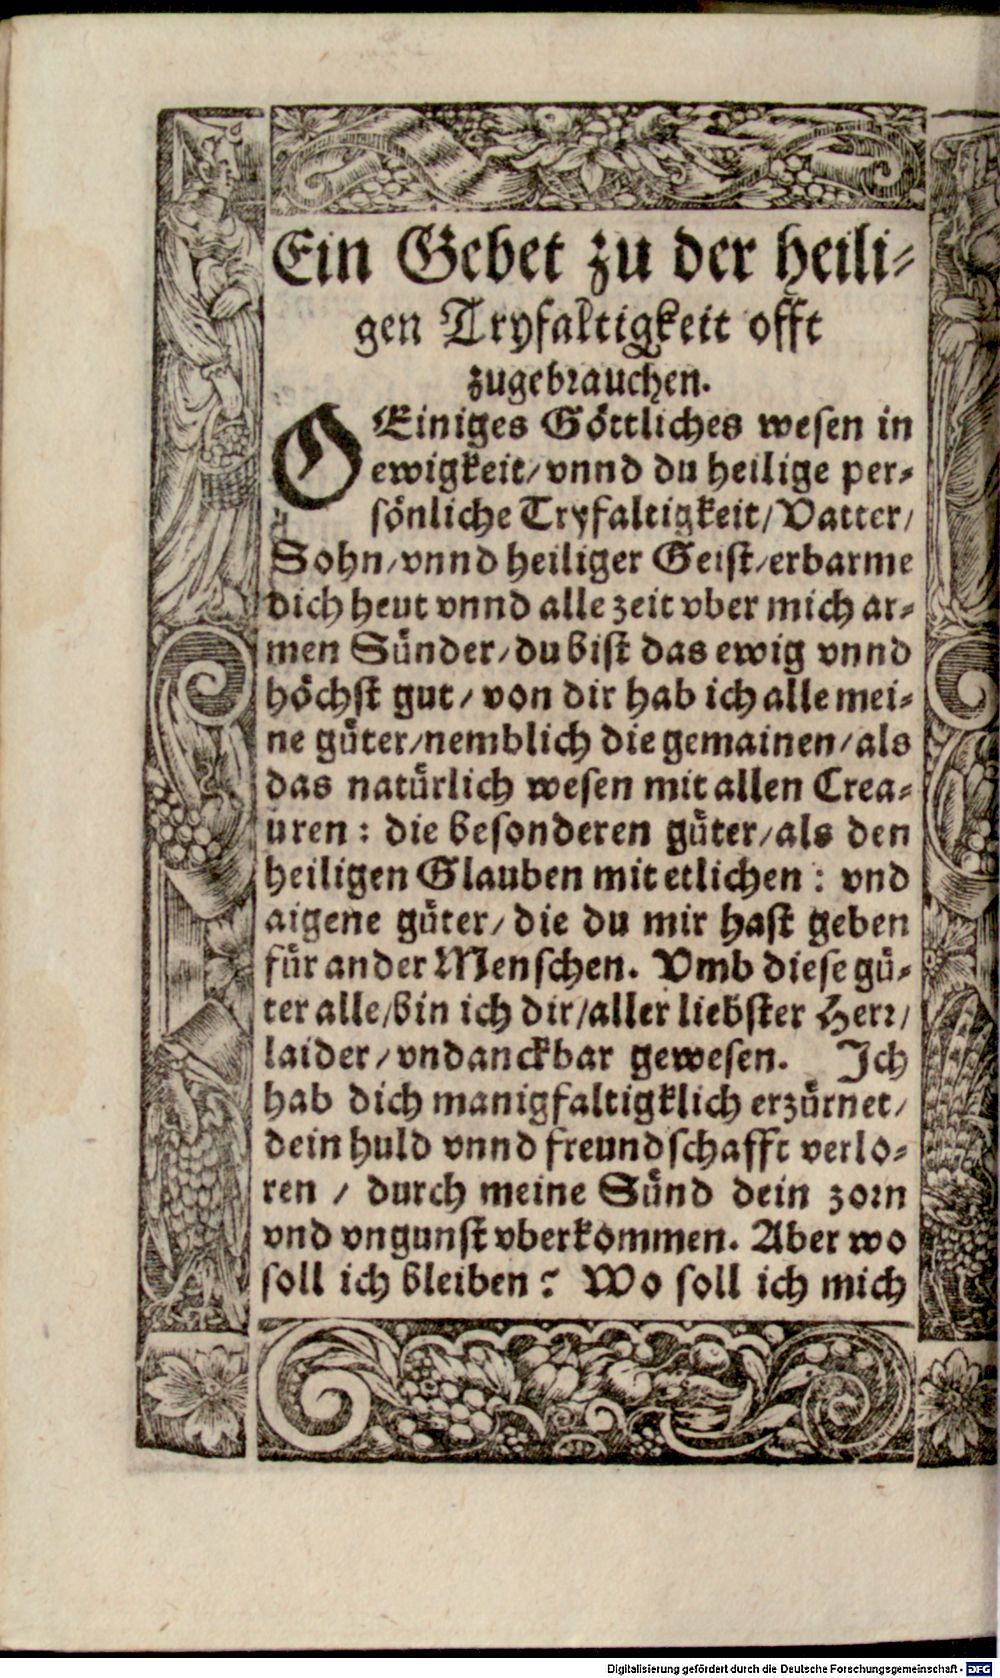 Ein Gebet zu der heili-
gen Tryfaltigkeit offt
zugebrauchen.
O Einiges Göttliches wesen in
ewigkeit/ vnnd du heilige per-
sönliche Tryfaltigkeit/ Vatter/
Sohn/ vnnd heiliger Geist/ erbarme
dich heut vnnd alle zeit vber mich ar-
men Sünder/ du bist das ewig vnnd
höchst gut/ von dir hab ich alle mei-
ne güter/ nemblich die gemainen/ als
das natürlich wesen mit allen Crea-
üren : die besonderen güter/ als den
heiligen Glauben mit etlichen : vnd
aigene güter/ die du mir hast geben
für ander Menschen. Vmb diese gü-
ter alle/ bin ich dir/ aller liebster Herr/
laider/ vndanckbar gewesen. Ich
hab dich manigfaltigklich erzürnet/
dein huld vnnd freundschafft verlo-
ren / durch meine Sünd dein zorn
vnd vngunst vberkommen. Aber wo
soll ich bleiben? Wo soll ich mich
Digitalisierung gefördert durch die Deutsche Forschungsgemeinschaft - DFG